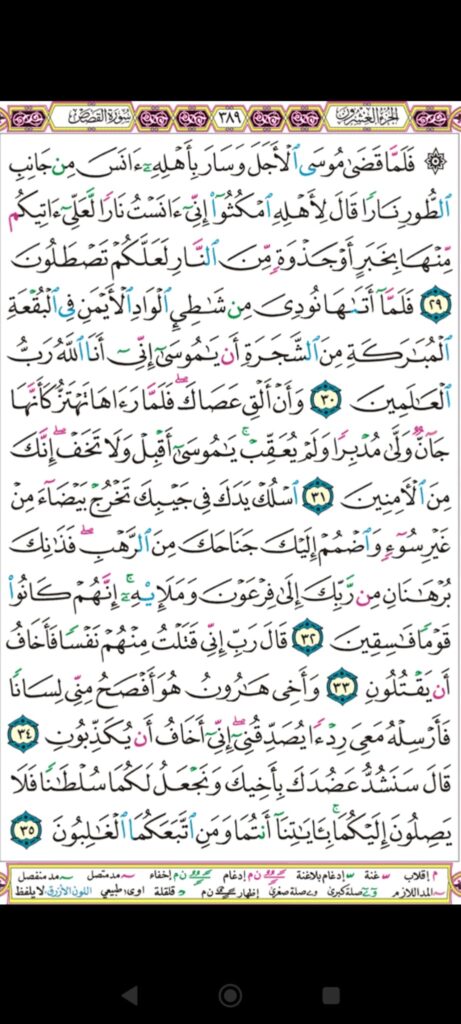 سُورَةُ القَصَصِ ٣٨٩ الجُزْءُ العِشْرُونَ
۞ فَلَمَّا قَضَىٰ مُوسَى الْأَجَلَ وَسَارَ بِأَهْلِهِ ءَانَسَ مِن جَانِبِ
الطُّورِ نَارًا قَالَ لِأَهْلِهِ امْكُثُوا إِنِّي ءَانَسْتُ نَارًا لَّعَلِّي ءَاتِيكُم
مِّنْهَا بِخَبَرٍ أَوْ جَذْوَةٍ مِّنَ النَّارِ لَعَلَّكُمْ تَصْطَلُونَ
٢٩ فَلَمَّا أَتَىٰهَا نُودِيَ مِن شَاطِئِ الْوَادِ الْأَيْمَنِ فِي الْبُقْعَةِ
الْمُبَارَكَةِ مِنَ الشَّجَرَةِ أَن يَامُوسَىٰ إِنِّي أَنَا اللَّهُ رَبُّ
الْعَالَمِينَ ٣٠ وَأَنْ أَلْقِ عَصَاكَ ۖ فَلَمَّا رَءَاهَا تَهْتَزُّ كَأَنَّهَا
جَانٌّ وَلَّىٰ مُدْبِرًا وَلَمْ يُعَقِّبْ ۚ يَامُوسَىٰ أَقْبِلْ وَلَا تَخَفْ ۖ إِنَّكَ
مِنَ الْأَمِنِينَ ٣١ اسْلُكْ يَدَكَ فِي جَيْبِكَ تَخْرُجْ بَيْضَآءَ مِنْ
غَيْرِ سُوٓءٍ وَاضْمُمْ إِلَيْكَ جَنَاحَكَ مِنَ الرَّهْبِ ۖ فَذَانِكَ
بُرْهَانَانِ مِن رَّبِّكَ إِلَىٰ فِرْعَوْنَ وَمَلَإِيْهِ ۚ إِنَّهُمْ كَانُوا
قَوْمًا فَاسِقِينَ ٣٢ قَالَ رَبِّ إِنِّي قَتَلْتُ مِنْهُمْ نَفْسًا فَأَخَافُ
أَن يَقْتُلُونِ ٣٣ وَأَخِي هَارُونُ هُوَ أَفْصَحُ مِنِّي لِسَانًا
فَأَرْسِلْهُ مَعِيَ رِدْءًا يُصَدِّقُنِي ۖ إِنِّي أَخَافُ أَن يُكَذِّبُونِ ٣٤
قَالَ سَنَشُدُّ عَضُدَكَ بِأَخِيكَ وَنَجْعَلُ لَكُمَا سُلْطَانًا فَلَا
يَصِلُونَ إِلَيْكُمَا ۚ بِـَٔايَاتِنَا أَنتُمَا وَمَنِ اتَّبَعَكُمَا الْغَالِبُونَ ٣٥
م إقلاب غنة إدغام بلاغنة ن م إدغام ن م إخفاء مد متصل مد منفصل
المد اللازم صلة كبرى صلة صغرى إظهار ن م قلقلة اوى: طبيعي اللون الأزرق: لا يلفظ